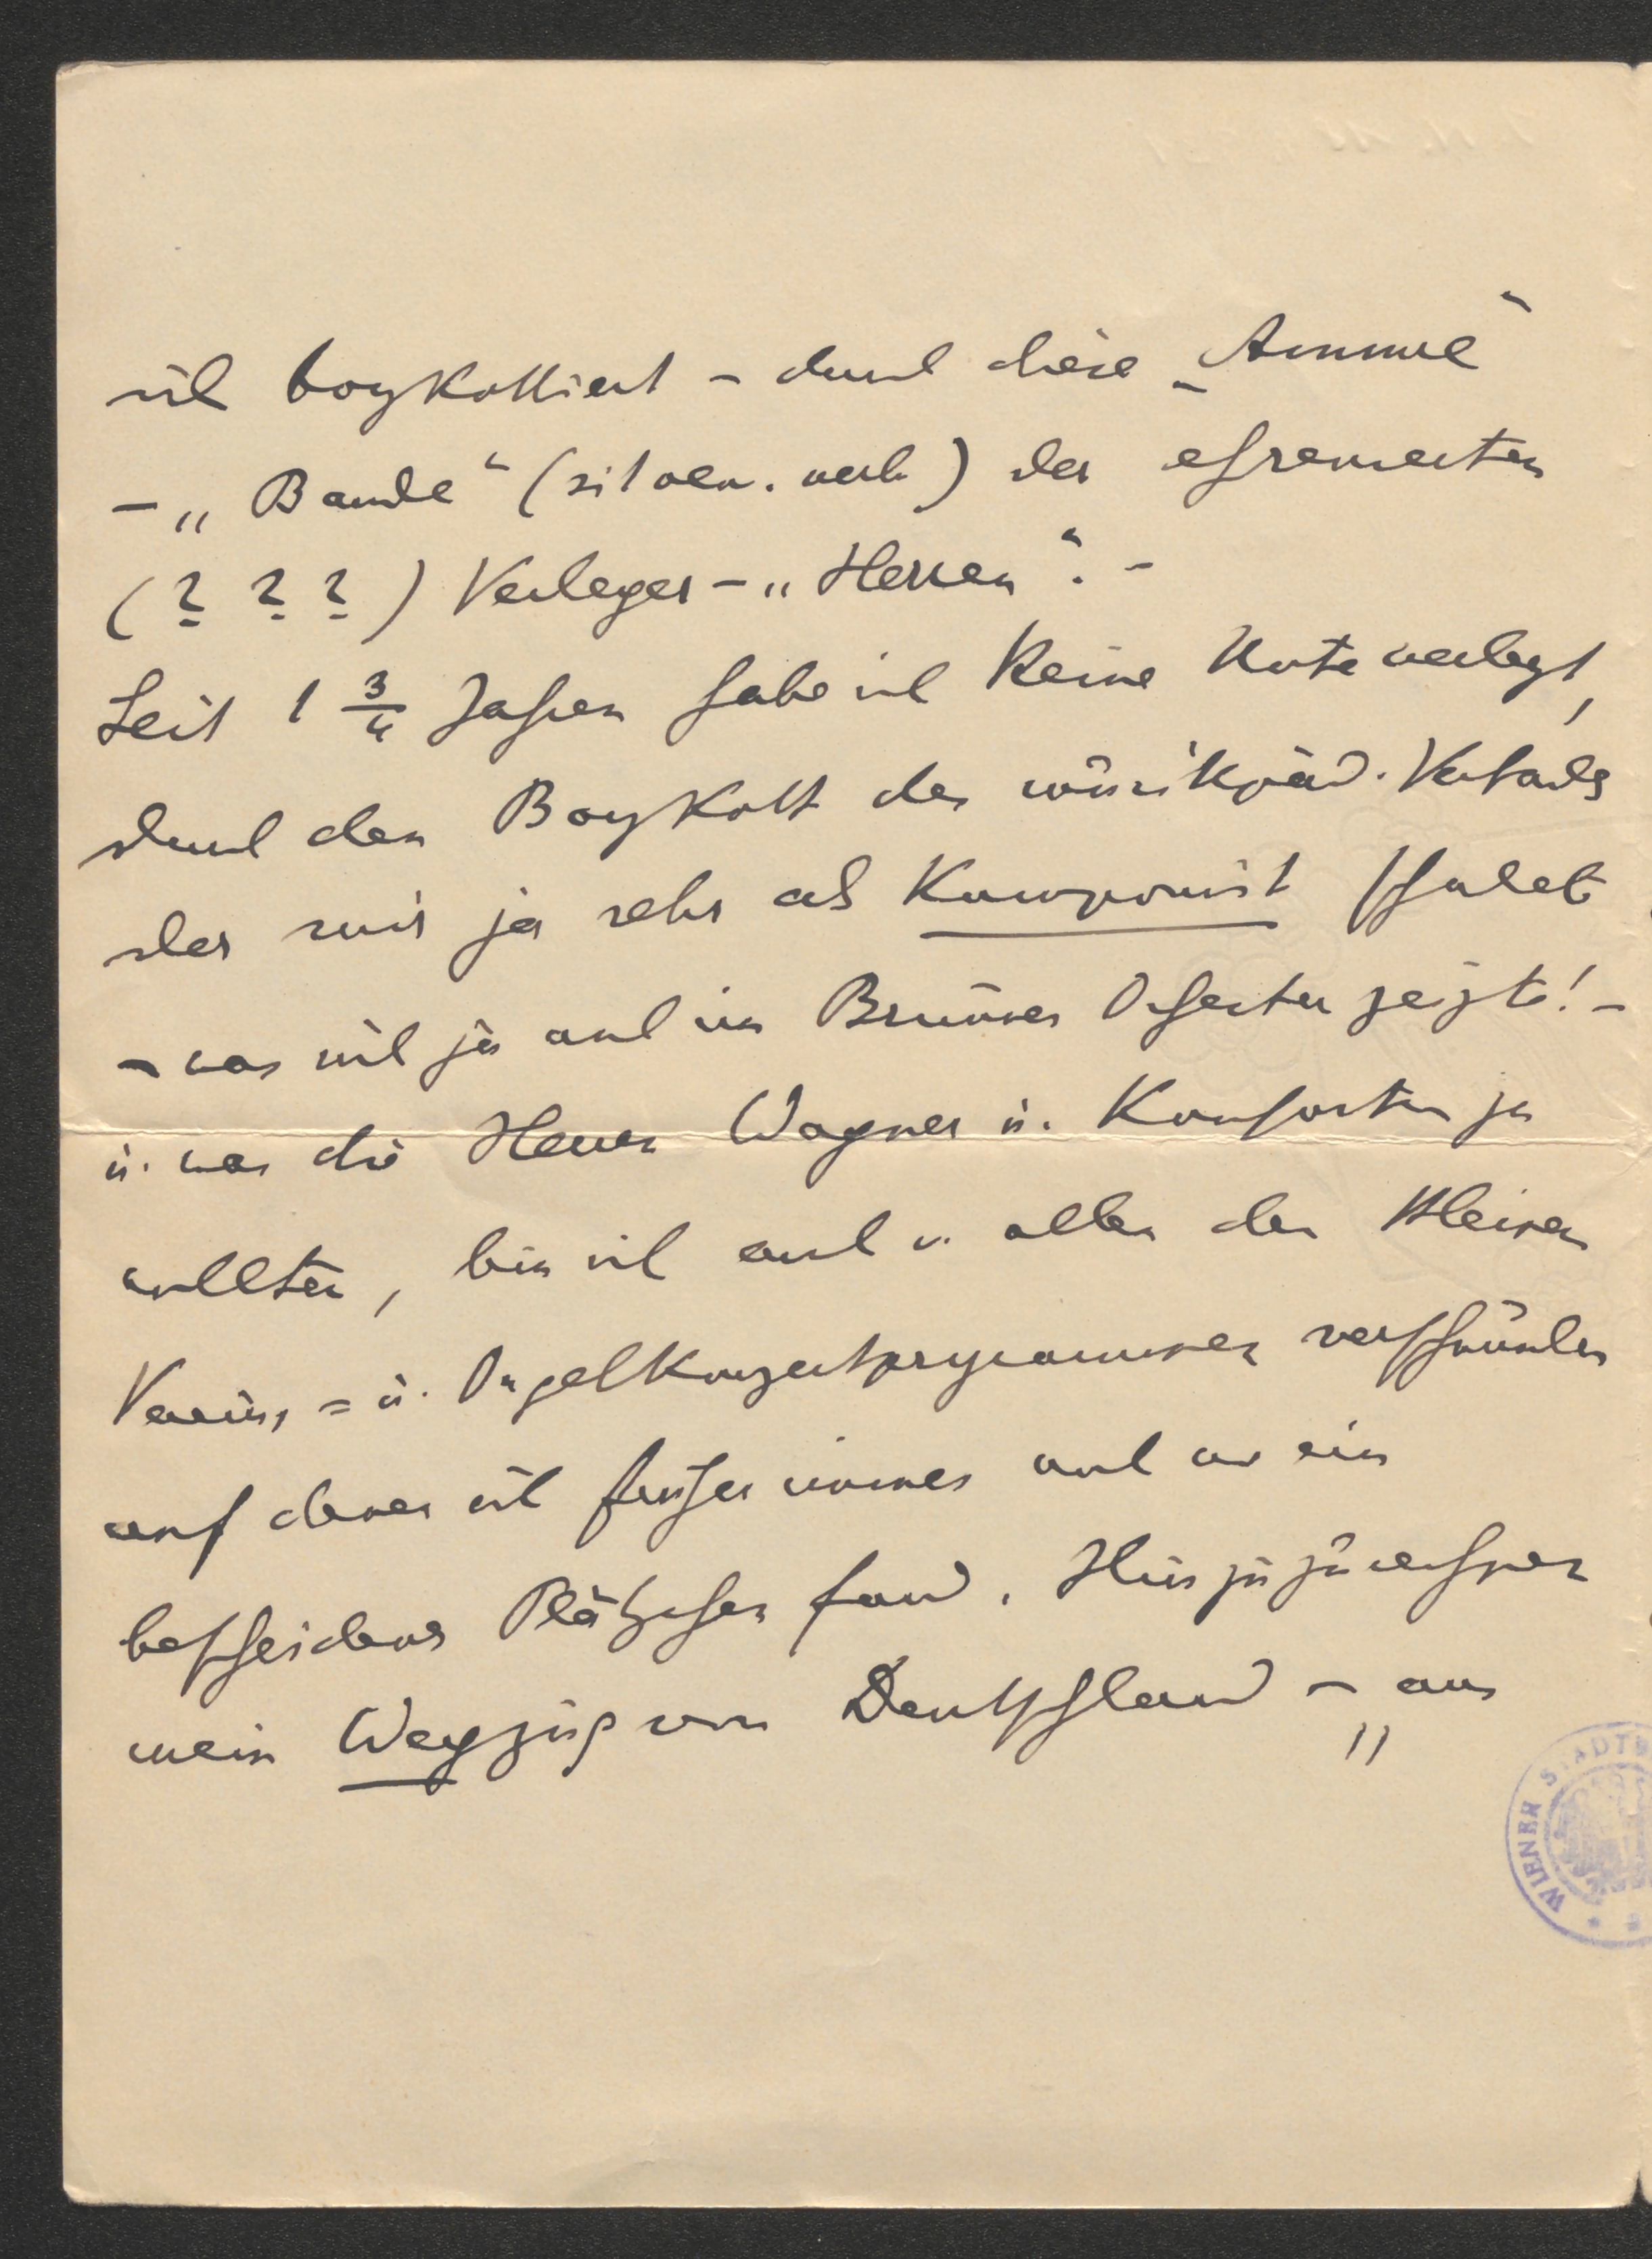 mich boykottiert – durch diese „Ammre"
– „Bande" (sit ven. verb.) der ehrenwerten
(? ? ?) Verleger – „Herren". –
Seit 1 3/4 Jahren habe ich keine Note verlegt,
durch den Boykott des musikpäd. Verbands
der mir ja sehr als Komponist schadet
– was sich ja auch im Brünner Orchester zeigte! –
u. was die Herren Wagner u. Konsorten ja
wollten, bin ich auch v. allen den kleinen
Vereins= u. Orgelkonzertprogrammen verschwunden
auf denen ich früher immer auch wo ein
bescheidenes Plätzchen fand. Hinzuzurechnen
mein Wegzug von Deutschland – „aus
WIENER STADTB